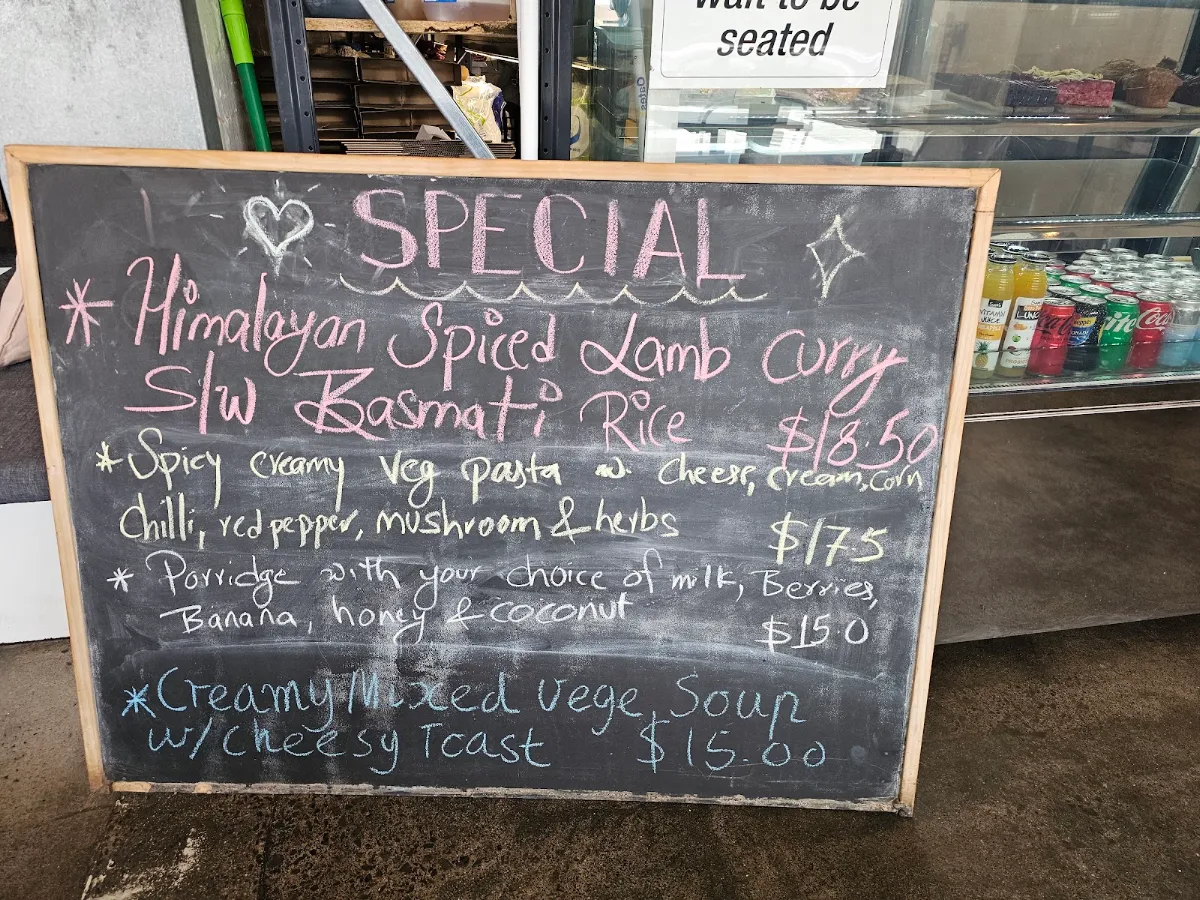 wait to be
seated
SPECIAL
* Himalayan Spiced Lamb Curry
S/w Basmati Rice $18.50
* Spicy creamy Veg pasta w. cheese, cream, corn
chilli, red pepper, mushroom & herbs $17.5
* Porridge with your choice of milk, Berries,
Banana, honey & coconut $15.0
* Creamy Mixed Vege Soup
w/ cheesy Toast $15.00
Oates
VITAMIN
JUICE
Coca